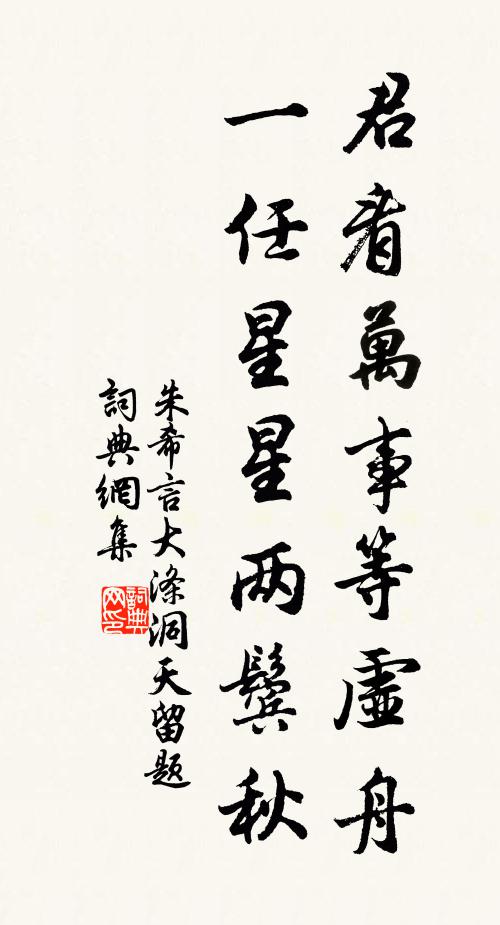 君看萬事等虛舟
一任星星两鬓秋
朱希言大涤洞天留题
詞典網集
詞典网印